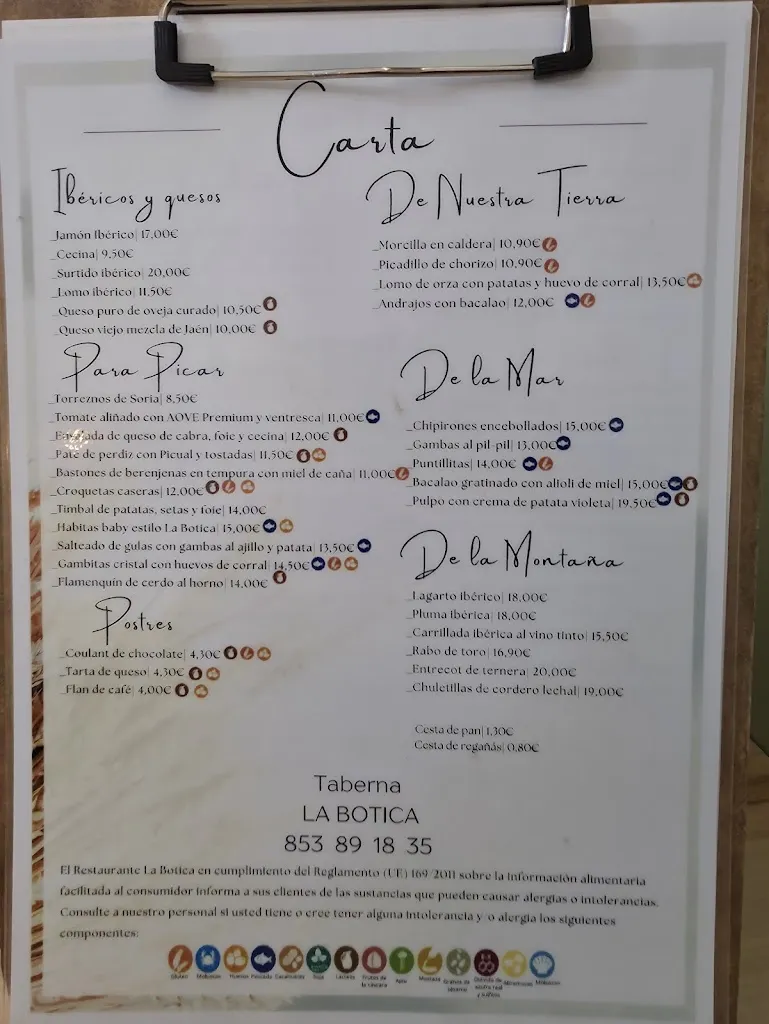 Carta
Ibéricos y quesos
_Jamón Ibérico| 17,00€
_Cecina| 9,50€
_Surtido ibérico| 20,00€
_Lomo ibérico| 11,50€
_Queso puro de oveja curado| 10,50€
_Queso viejo mezcla de Jaén| 10,00€
Para Picar
_Torreznos de Soria| 8,50€
_Tomate aliñado con AOVE Premium y ventresca| 11,00€
_Ensalada de queso de cabra, foie y cecina| 12,00€
_Paté de perdiz con Picual y tostadas| 11,50€
_Bastones de berenjenas en tempura con miel de caña| 11,00€
_Croquetas caseras| 12,00€
_Timbal de patatas, setas y foie| 14,00€
_Habitas baby estilo La Botica| 15,00€
_Salteado de gulas con gambas al ajillo y patata| 13,50€
_Gambitas cristal con huevos de corral| 14,50€
_Flamenquín de cerdo al horno| 14,00€
Postres
_Coulant de chocolate| 4,30€
_Tarta de queso| 4,30€
_Flan de café| 4,00€
De Nuestra Tierra
_Morcilla en caldera| 10,90€
_Picadillo de chorizo| 10,90€
_Lomo de orza con patatas y huevo de corral| 13,50€
_Andrajos con bacalao| 12,00€
De la Mar
_Chipirones encebollados| 15,00€
_Gambas al pil-pil| 13,00€
_Puntillitas| 14,00€
_Bacalao gratinado con alioli de miel| 15,00€
_Pulpo con crema de patata violeta| 19,50€
De la Montaña
_Lagarto ibérico| 18,00€
_Pluma ibérica| 18,00€
_Carrillada ibérica al vino tinto| 15,50€
_Rabo de toro| 16,90€
_Entrecot de ternera| 20,00€
_Chuletillas de cordero lechal| 19,00€
Cesta de pan| 1,30€
Cesta de regañás| 0,80€
Taberna
LA BOTICA
853 89 18 35
El Restaurante La Botica en cumplimiento del Reglamento (UE) 169/2011 sobre la información alimentaria
facilitada al consumidor informa a sus clientes de las sustancias que pueden causar alergias o intolerancias.
Consulte a nuestro personal si usted tiene o cree tener alguna intolerancia y/o alergia los siguientes
componentes:
Gluten Moluscos Huevos Pescado Cacahuetes Soja Lácteos Frutos de la cáscara Apio Mostaza Granos de sésamo